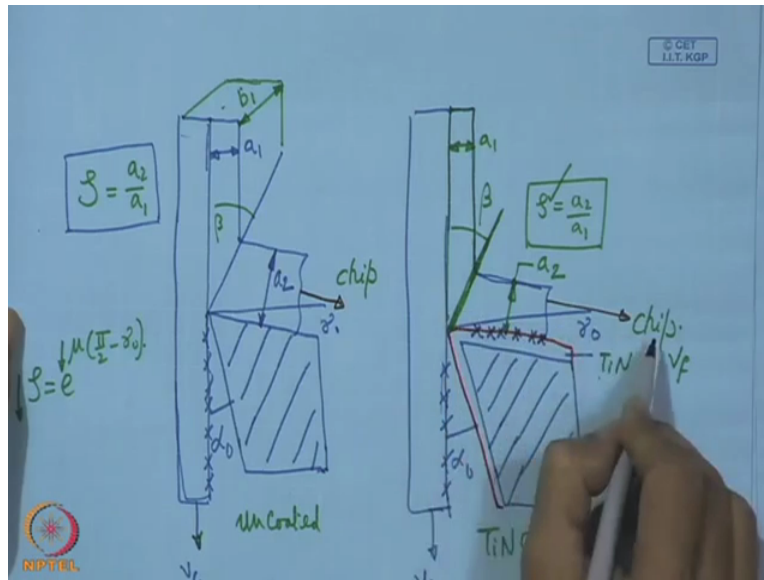 © CET
I.I.T. KGP
b1
a1
ζ = a2/a1
β
a2
chip
γ0
ζ = e^μ(π/2 - γ0)
α0
uncoated
a1
β
ζ = a2/a1
a2
γ0
chip.
TiN
Vf
α0
TiN
NPTEL